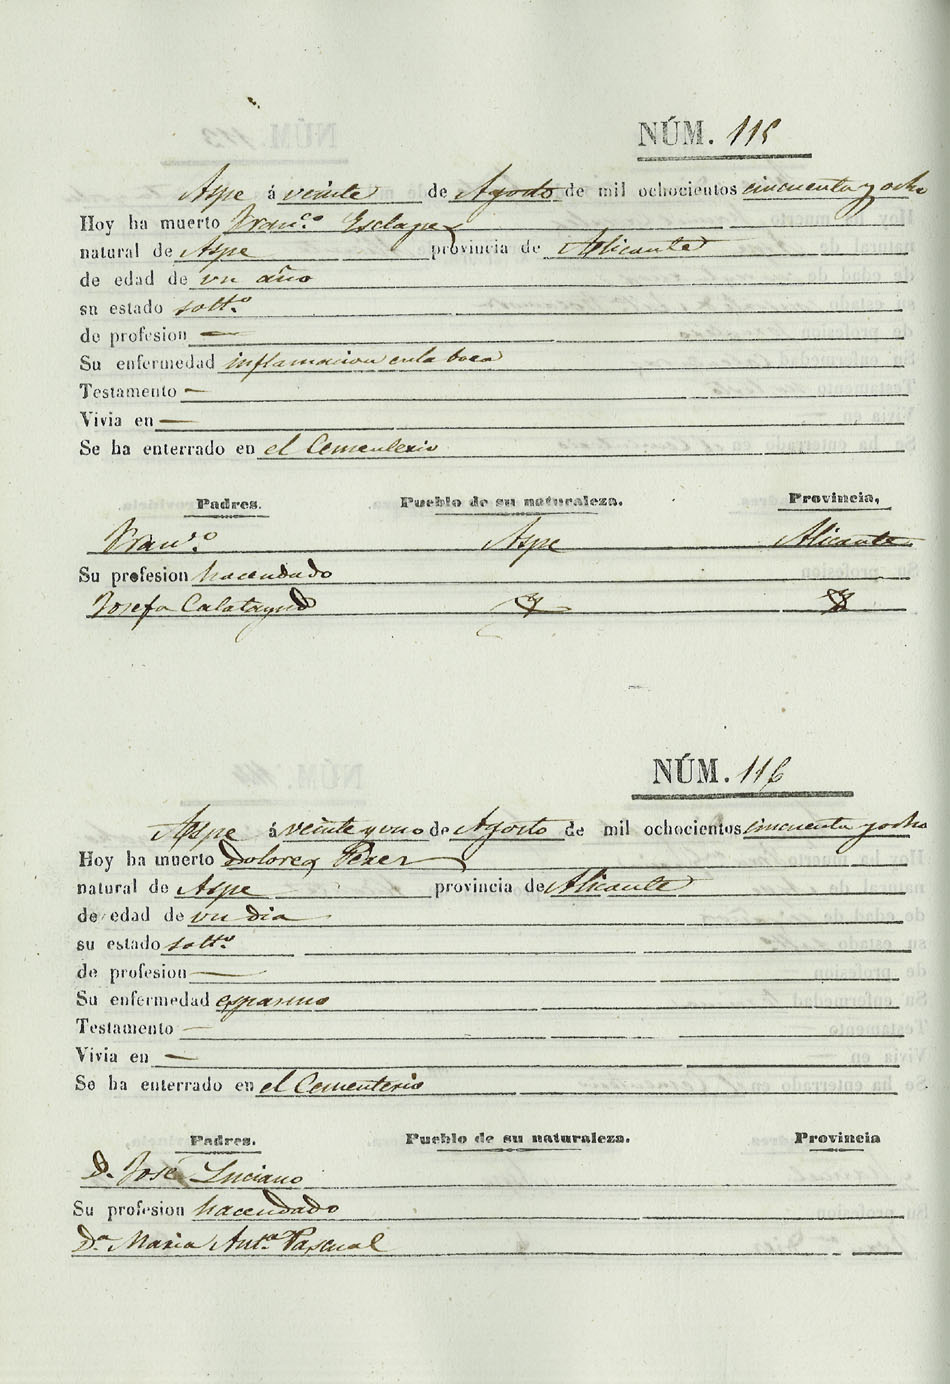 NÚM. 115
Aspe á veinte de Agosto de mil ochocientos cincuenta y ocho
Hoy ha muerto Franco. Esclapez
natural de Aspe provincia de Alicante
de edad de un año
su estado soltº
de profesion —
Su enfermedad inflamacion en la boca
Testamento —
Vivia en —
Se ha enterrado en el Cementerio
Padres. Pueblo de su naturaleza. Provincia,
Franco. Aspe Alicante
Su profesion hacendado
Josefa Calatayud
NÚM. 116
Aspe á veinte y uno de Agosto de mil ochocientos cincuenta y ocho
Hoy ha muerto Dolores Perez
natural de Aspe provincia de Alicante
de edad de un dia
su estado soltº
de profesion —
Su enfermedad espasmo
Testamento —
Vivia en —
Se ha enterrado en el Cementerio
Padres. Pueblo de su naturaleza. Provincia
D. José Luciano
Su profesion hacendado
Dª Maria Antª Pascual